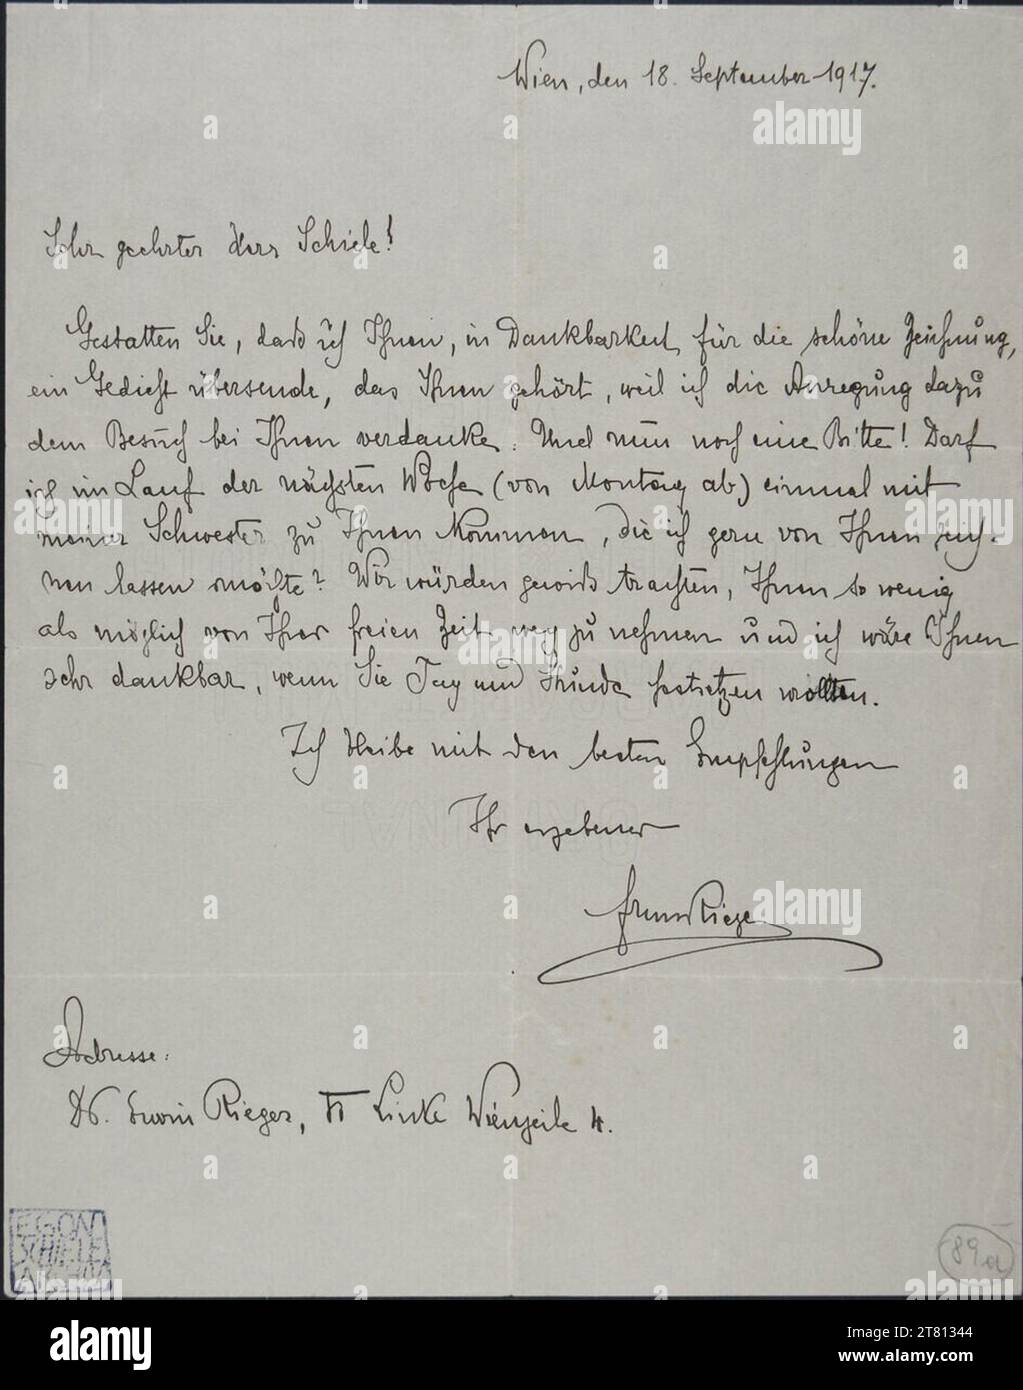 Wien, den 18. September 1917.
Sehr geehrter Herr Schiele!
Gestatten Sie, daß ich Ihnen, in Dankbarkeit für die schöne Zeichnung,
ein Gedicht übersende, das Ihnen gehört, weil ich die Anregung dazu
dem Besuch bei Ihnen verdanke. Und nun noch eine Bitte! Darf
ich im Lauf der nächsten Woche (von Montag ab) einmal mit
meiner Schwester zu Ihnen kommen, die ich gern von Ihnen zeich-
nen lassen möchte? Wir würden gewiß trachten, Ihnen so wenig
als möglich von Ihrer freien Zeit weg zu nehmen und ich wäre Ihnen
sehr dankbar, wenn Sie Tag und Stunde festsetzen wollten.
Ich bleibe mit den besten Empfehlungen
Ihr ergebener
Erwin Rieger
Adresse:
Dr. Erwin Rieger, VI Linke Wienzeile 4.
EGON
SCHIELE
89a
alamy
alamy
Image ID: 2T81344
www.alamy.com